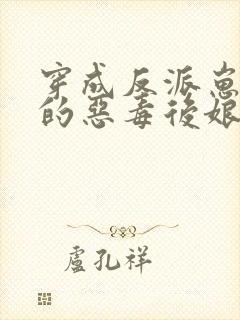 穿成反派崽
的惡毒後娘
盧孔祥